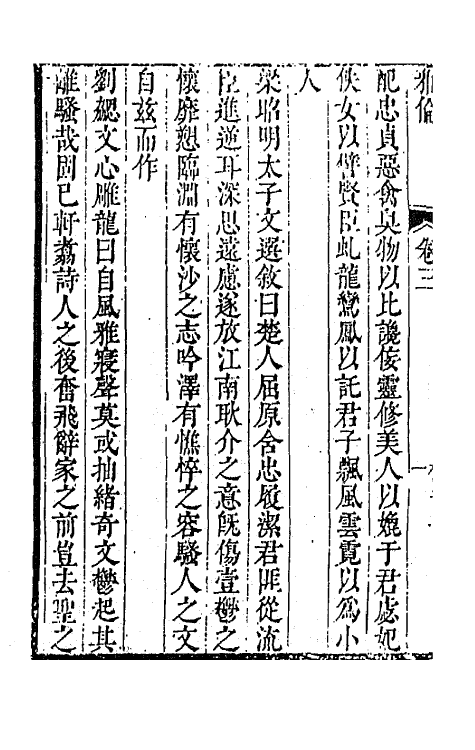 雅倫
卷三
配忠貞惡禽臭物以比讒佞靈修美人以媲于君虙妃
佚女以譬賢臣虬龍鸞鳳以託君子飄風雲霓以爲小
人
梁昭明太子文選敘曰楚人屈原含忠履潔君匪從流
臣進逆耳深思遠慮遂放江南耿介之意旣傷壹鬱之
懷靡愬臨淵有懷沙之志吟澤有憔悴之容騷人之文
自茲而作
劉勰文心雕龍曰自風雅寢聲莫或抽緒奇文鬱起其
離騷哉固已軒翥詩人之後奮飛辭家之前豈去聖之